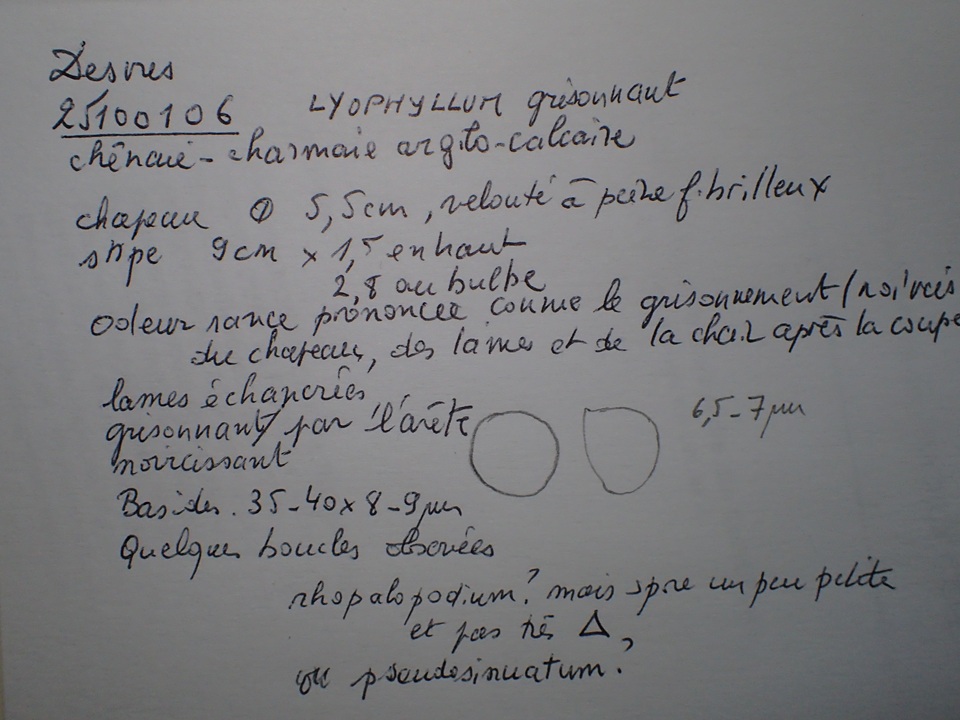 Desvres
25100106 LYOPHYLLUM grisonnant
chênaie - charmaie argilo-calcaire
chapeau Ø 5,5cm, velouté à peine fibrilleux
stipe 9cm x 1,5 en haut
2,8 au bulbe
Odeur rance prononcée comme le grisonnement/noircis
du chapeau, des lames et de la chair après la coupe
lames échancrées
grisonnant/ par l'arête
noircissant
6,5-7 µm
Basides. 35-40 x 8-9 µm
Quelques boucles observées
rhopalopodium? mais spore un peu petite
et pas très Δ,
ou pseudosinuatum?